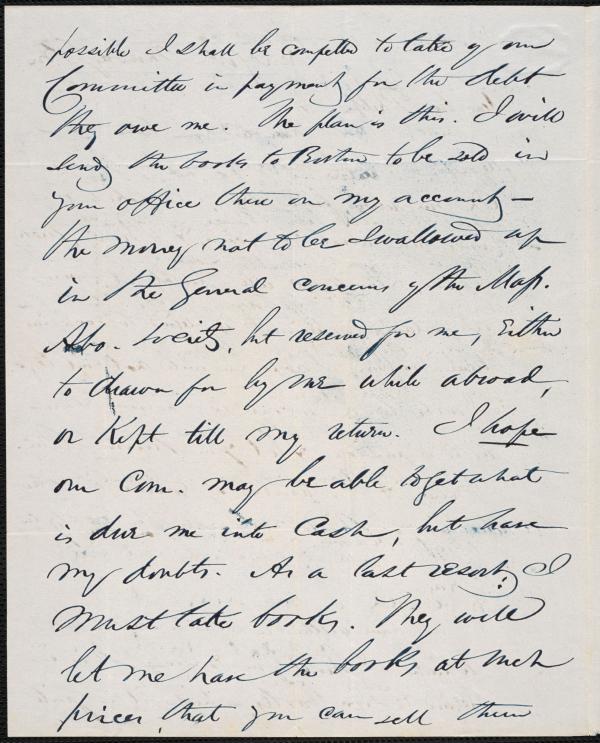 possible I shall be compelled to take of our
Committee in payment for the debt
they owe me. The plan is this. I will
send the books to Boston to be sold in
your office there on my account —
the money not to be swallowed up
in the General concerns of the Mass.
Abo. Society, but reserved for me, Either
to drawn for by me while abroad,
or Kept till my return. I hope
our Com. may be able to get what
is due me into Cash, but have
my doubts. As a last resort, I
must take books. They will
let me have the books at such
prices, that you can sell them